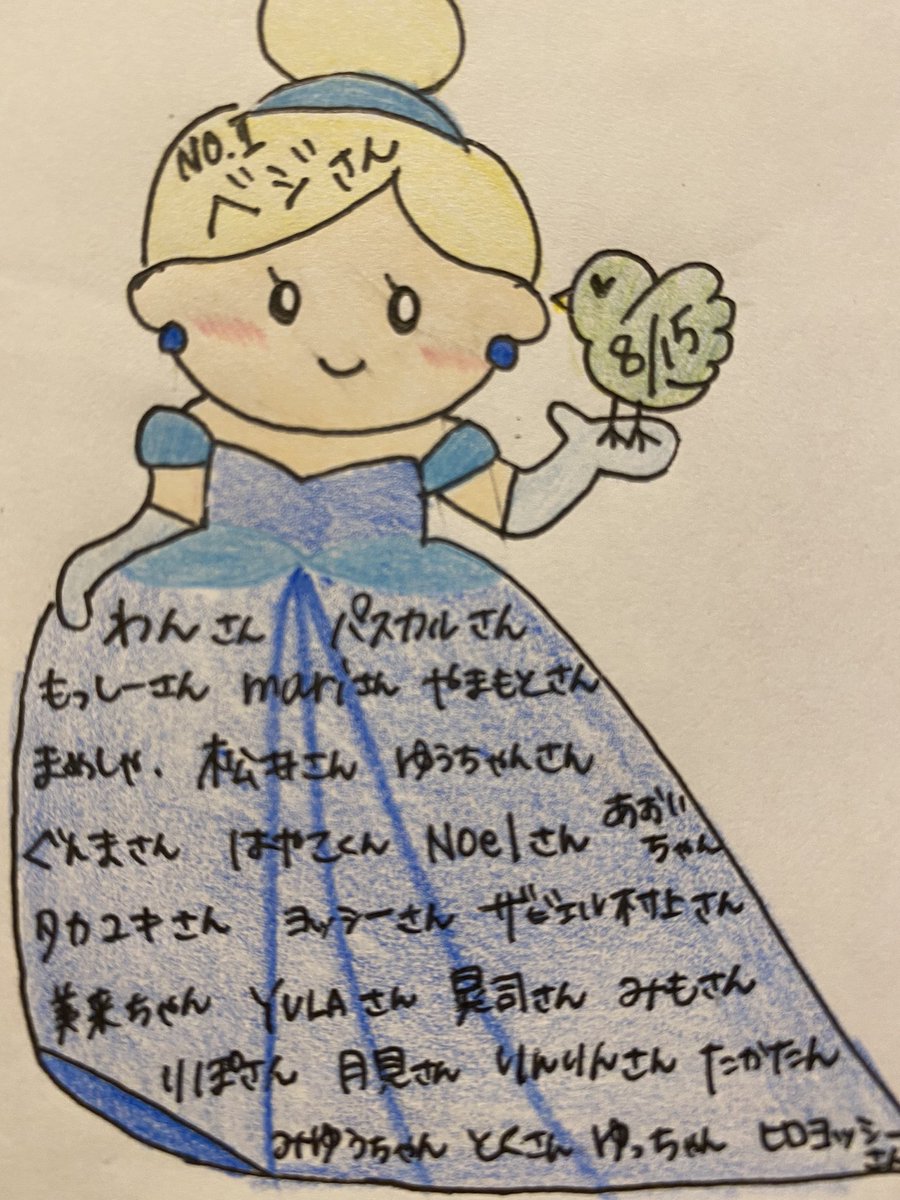 NO.1
ベジさん
8/15
わんさん パスカルさん
もっしーさん mariさん やまもとさん
まめしゃ. 松井さん ゆうちゃんさん
ぐんまさん はやてくん Noelさん あおいちゃん
タカユキさん ヨッシーさん ザビエル村上さん
美来ちゃん YULAさん 晃司さん みもさん
りぽさん 月見さん りんりんさん たかたん
みゆうちゃん とくさん ゆっちゃん ヒロヨッシーさん